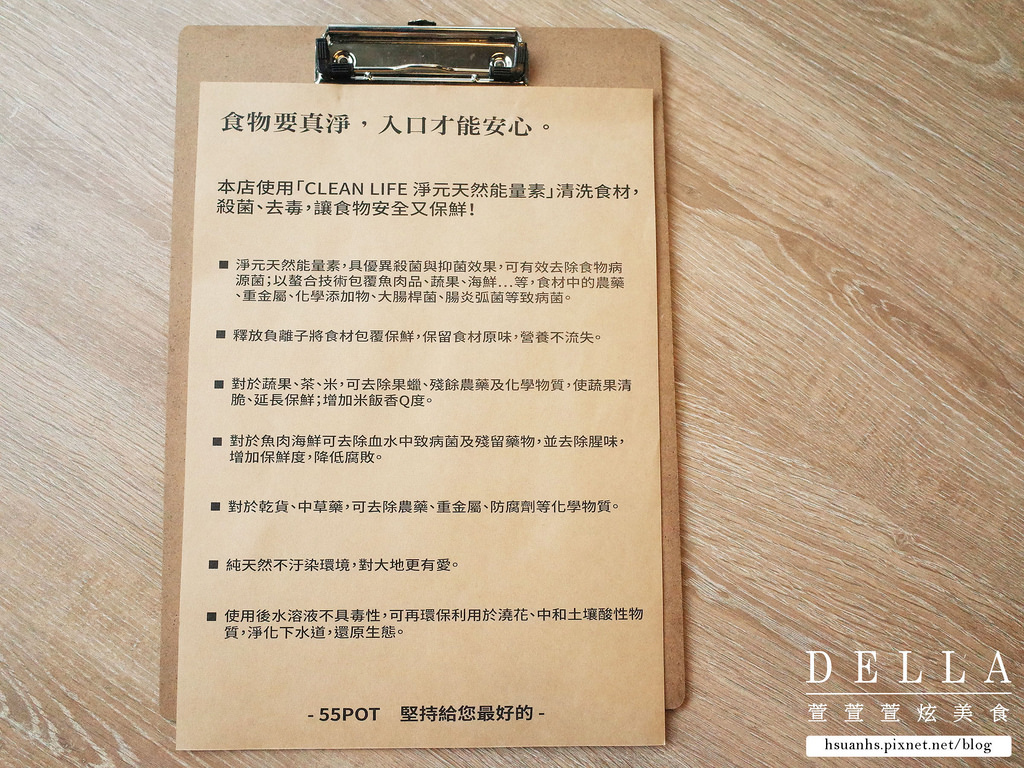 食物要真淨，入口才能安心。
本店使用「CLEAN LIFE 淨元天然能量素」清洗食材，
殺菌、去毒，讓食物安全又保鮮！
■ 淨元天然能量素，具優異殺菌與抑菌效果，可有效去除食物病
源菌；以螯合技術包覆魚肉品、蔬果、海鮮...等，食材中的農藥
、重金屬、化學添加物、大腸桿菌、腸炎弧菌等致病菌。
■ 釋放負離子將食材包覆保鮮，保留食材原味，營養不流失。
■ 對於蔬果、茶、米，可去除果蠟、殘餘農藥及化學物質，使蔬果清
脆、延長保鮮；增加米飯香Q度。
■ 對於魚肉海鮮可去除血水中致病菌及殘留藥物，並去除腥味，
增加保鮮度，降低腐敗。
■ 對於乾貨、中草藥，可去除農藥、重金屬、防腐劑等化學物質。
■ 純天然不汙染環境，對大地更有愛。
■ 使用後水溶液不具毒性，可再環保利用於澆花、中和土壤酸性物
質，淨化下水道，還原生態。
- 55POT 堅持給您最好的 -
DELLA
萱萱萱炫美食
hsuanhs.pixnet.net/blog